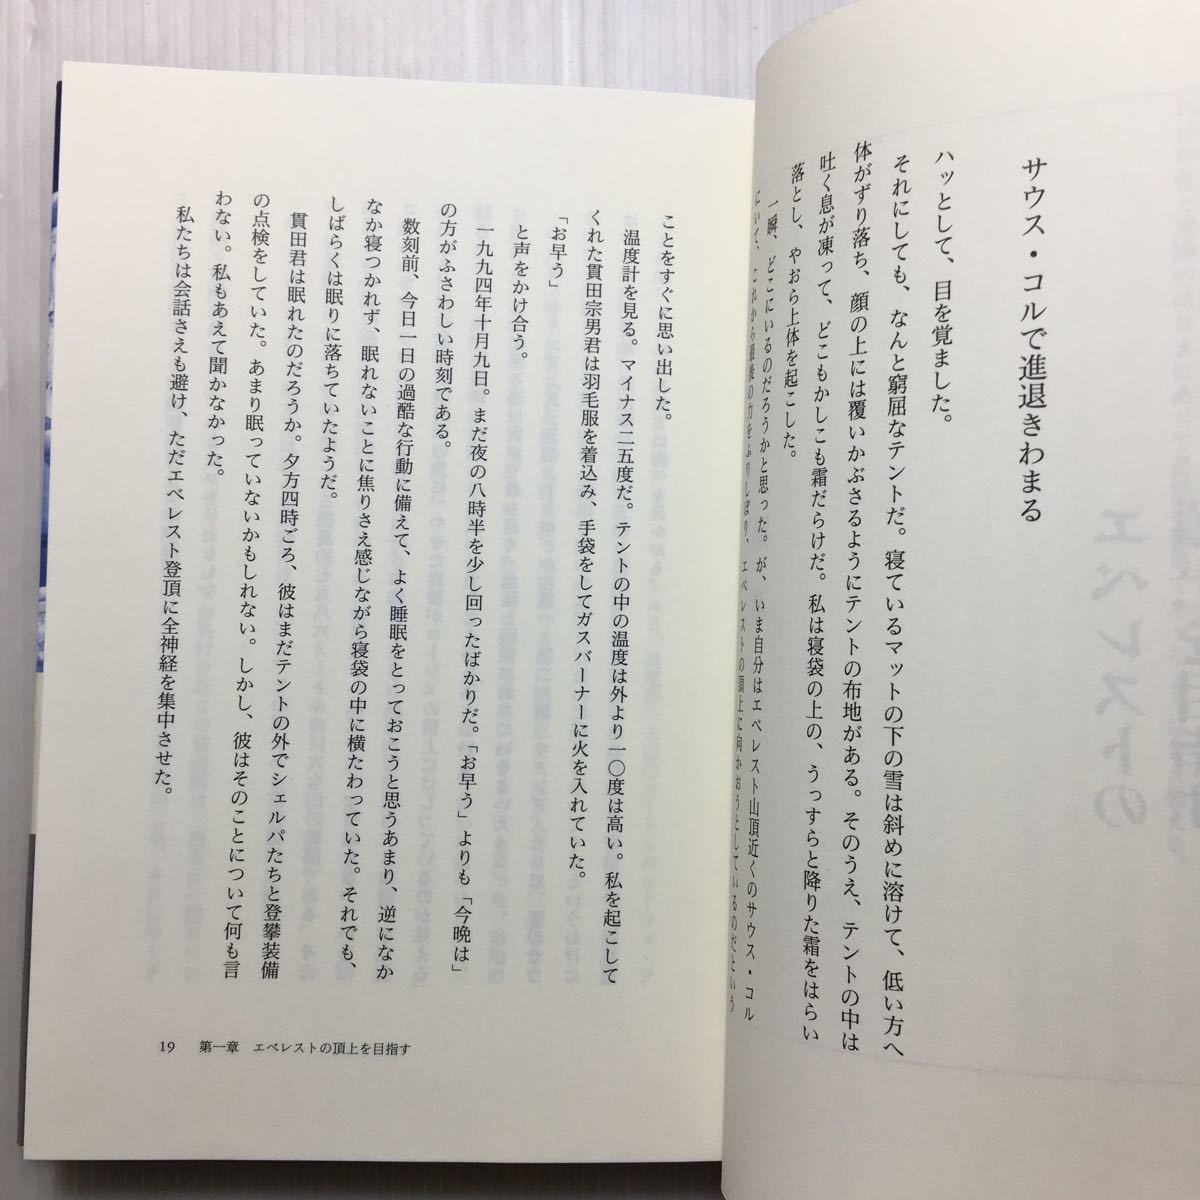 サウス・コルで進退きわまる
ハッとして、目を覚ました。
それにしても、なんと窮屈なテントだ。寝ているマットの下の雪は斜めに溶けて、低い方へ
体がずり落ち、顔の上には覆いかぶさるようにテントの布地がある。そのうえ、テントの中は
吐く息が凍って、どこもかしこも霜だらけだ。私は寝袋の上の、うっすらと降りた霜をはらい
落とし、やおら上体を起こした。
一瞬、どこにいるのだろうかと思った。が、いま自分はエベレスト山頂近くのサウス・コル
にいて、これから最後の力をふりしぼり、エベレストの頂上に向かおうとしているのだという
ことをすぐに思い出した。
温度計を見る。マイナス二五度だ。テントの中の温度は外より一〇度は高い。私を起こして
くれた貫田宗男君は羽毛服を着込み、手袋をしてガスバーナーに火を入れていた。
「お早う」
と声をかけ合う。
一九九四年十月九日。まだ夜の八時半を少し回ったばかりだ。「お早う」よりも「今晩は」
の方がふさわしい時刻である。
数刻前、今日一日の過酷な行動に備えて、よく睡眠をとっておこうと思うあまり、逆になか
なか寝つかれず、眠れないことに焦りさえ感じながら寝袋の中に横たわっていた。それでも、
しばらくは眠りに落ちていたようだ。
貫田君は眠れたのだろうか。夕方四時ごろ、彼はまだテントの外でシェルパたちと登攀装備
の点検をしていた。あまり眠っていないかもしれない。しかし、彼はそのことについて何も言
わない。私もあえて聞かなかった。
私たちは会話さえも避け、ただエベレスト登頂に全神経を集中させた。
19 第一章 エベレストの頂上を目指す
エベレストの